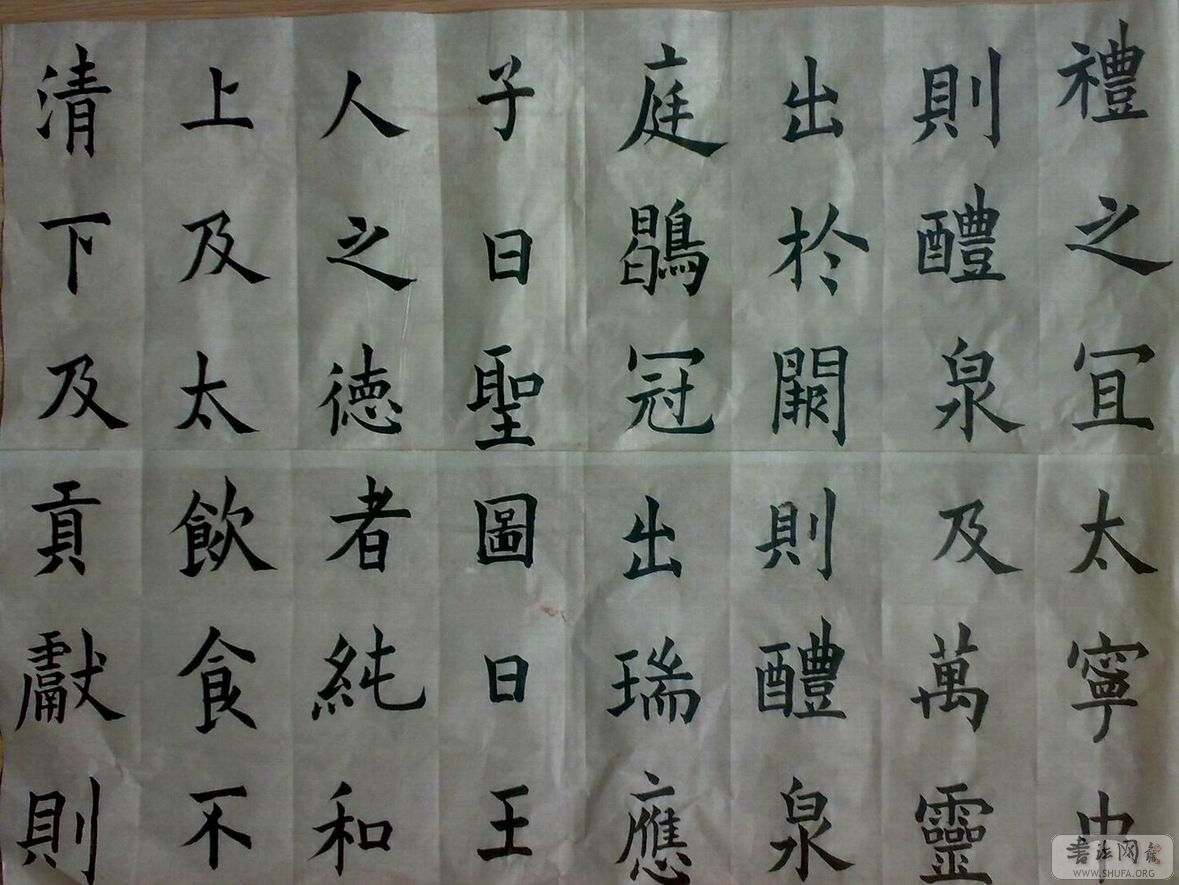 禮之冝
則醴泉
出於闕
庭鶡冠
子曰聖
人之德
上及太
清下及
太寧中
及萬靈
則醴泉
出瑞應
圖曰王
者純和
飲食不
貢獻則
书法网
WWW.SHUFA.ORG